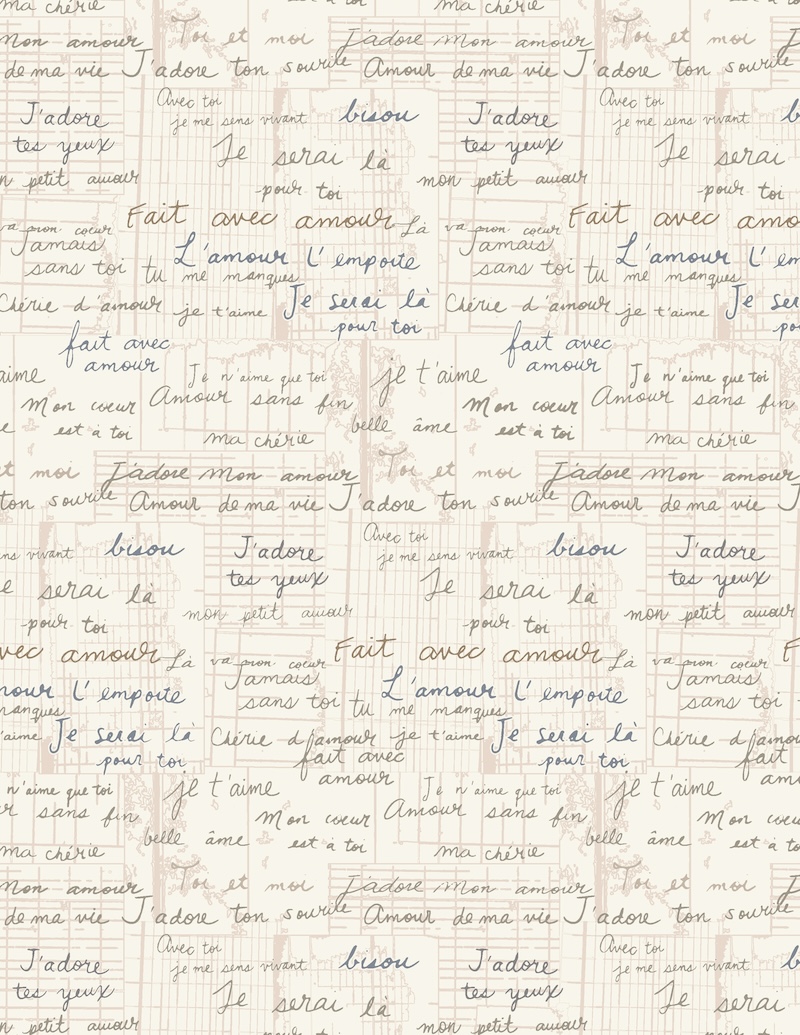 ma chérie ma chérie
Mon amour Toi et moi J'adore Mon amour Toi et moi
de ma vie J'adore ton sourire Amour de ma vie J'adore ton sourire
J'adore Avec toi bisou J'adore Avec toi
tes yeux je me sens vivant tes yeux je me sens vivant
Je serai là Je serai
petit amour pour toi mon petit amour pour toi
Fait avec amour Là Fait avec
va mon cœur va mon cœur
Jamais L'amour l'emporte Jamais L'amour l'emporte
sans toi tu me manques sans toi tu me manques
Chérie d'amour je t'aime Je serai là Chérie d'amour je t'aime Je serai
pour toi pour toi
fait avec fait avec
amour amour
je t'aime
Je n'aime que toi Je n'aime que toi
Mon cœur Amour sans fin Mon cœur Amour sans fin
est à toi belle âme est à toi
ma chérie ma chérie
moi J'adore Mon amour Toi et moi J'adore Mon amour
ton sourire Amour de ma vie J'adore ton sourire Amour de ma vie
Avec toi
vivant bisou J'adore je me sens vivant bisou J'adore
serai là tes yeux Je serai là tes yeux
pour toi mon petit amour pour toi mon petit amour
avec amour Là Fait avec amour Là
va mon cœur va mon cœur
l'emporte Jamais L'amour l'emporte Jamais
manques sans toi tu me manques sans toi
Je serai là Chérie d'amour je t'aime Je serai là Chérie
pour toi fait avec pour toi fait avec
n'aime que toi je t'aime amour Je n'aime que toi je t'aime
sans fin Mon cœur Amour sans fin Mon cœur
belle âme est à toi belle âme est à toi
ma chérie ma chérie
Mon amour Toi et moi J'adore Mon amour Toi et moi
de ma vie J'adore ton sourire Amour de ma vie J'adore ton sourire
J'adore Avec toi bisou J'adore Avec toi
tes yeux je me sens vivant tes yeux je me sens vivant
Je serai là Je serai
petit amour mon petit amour